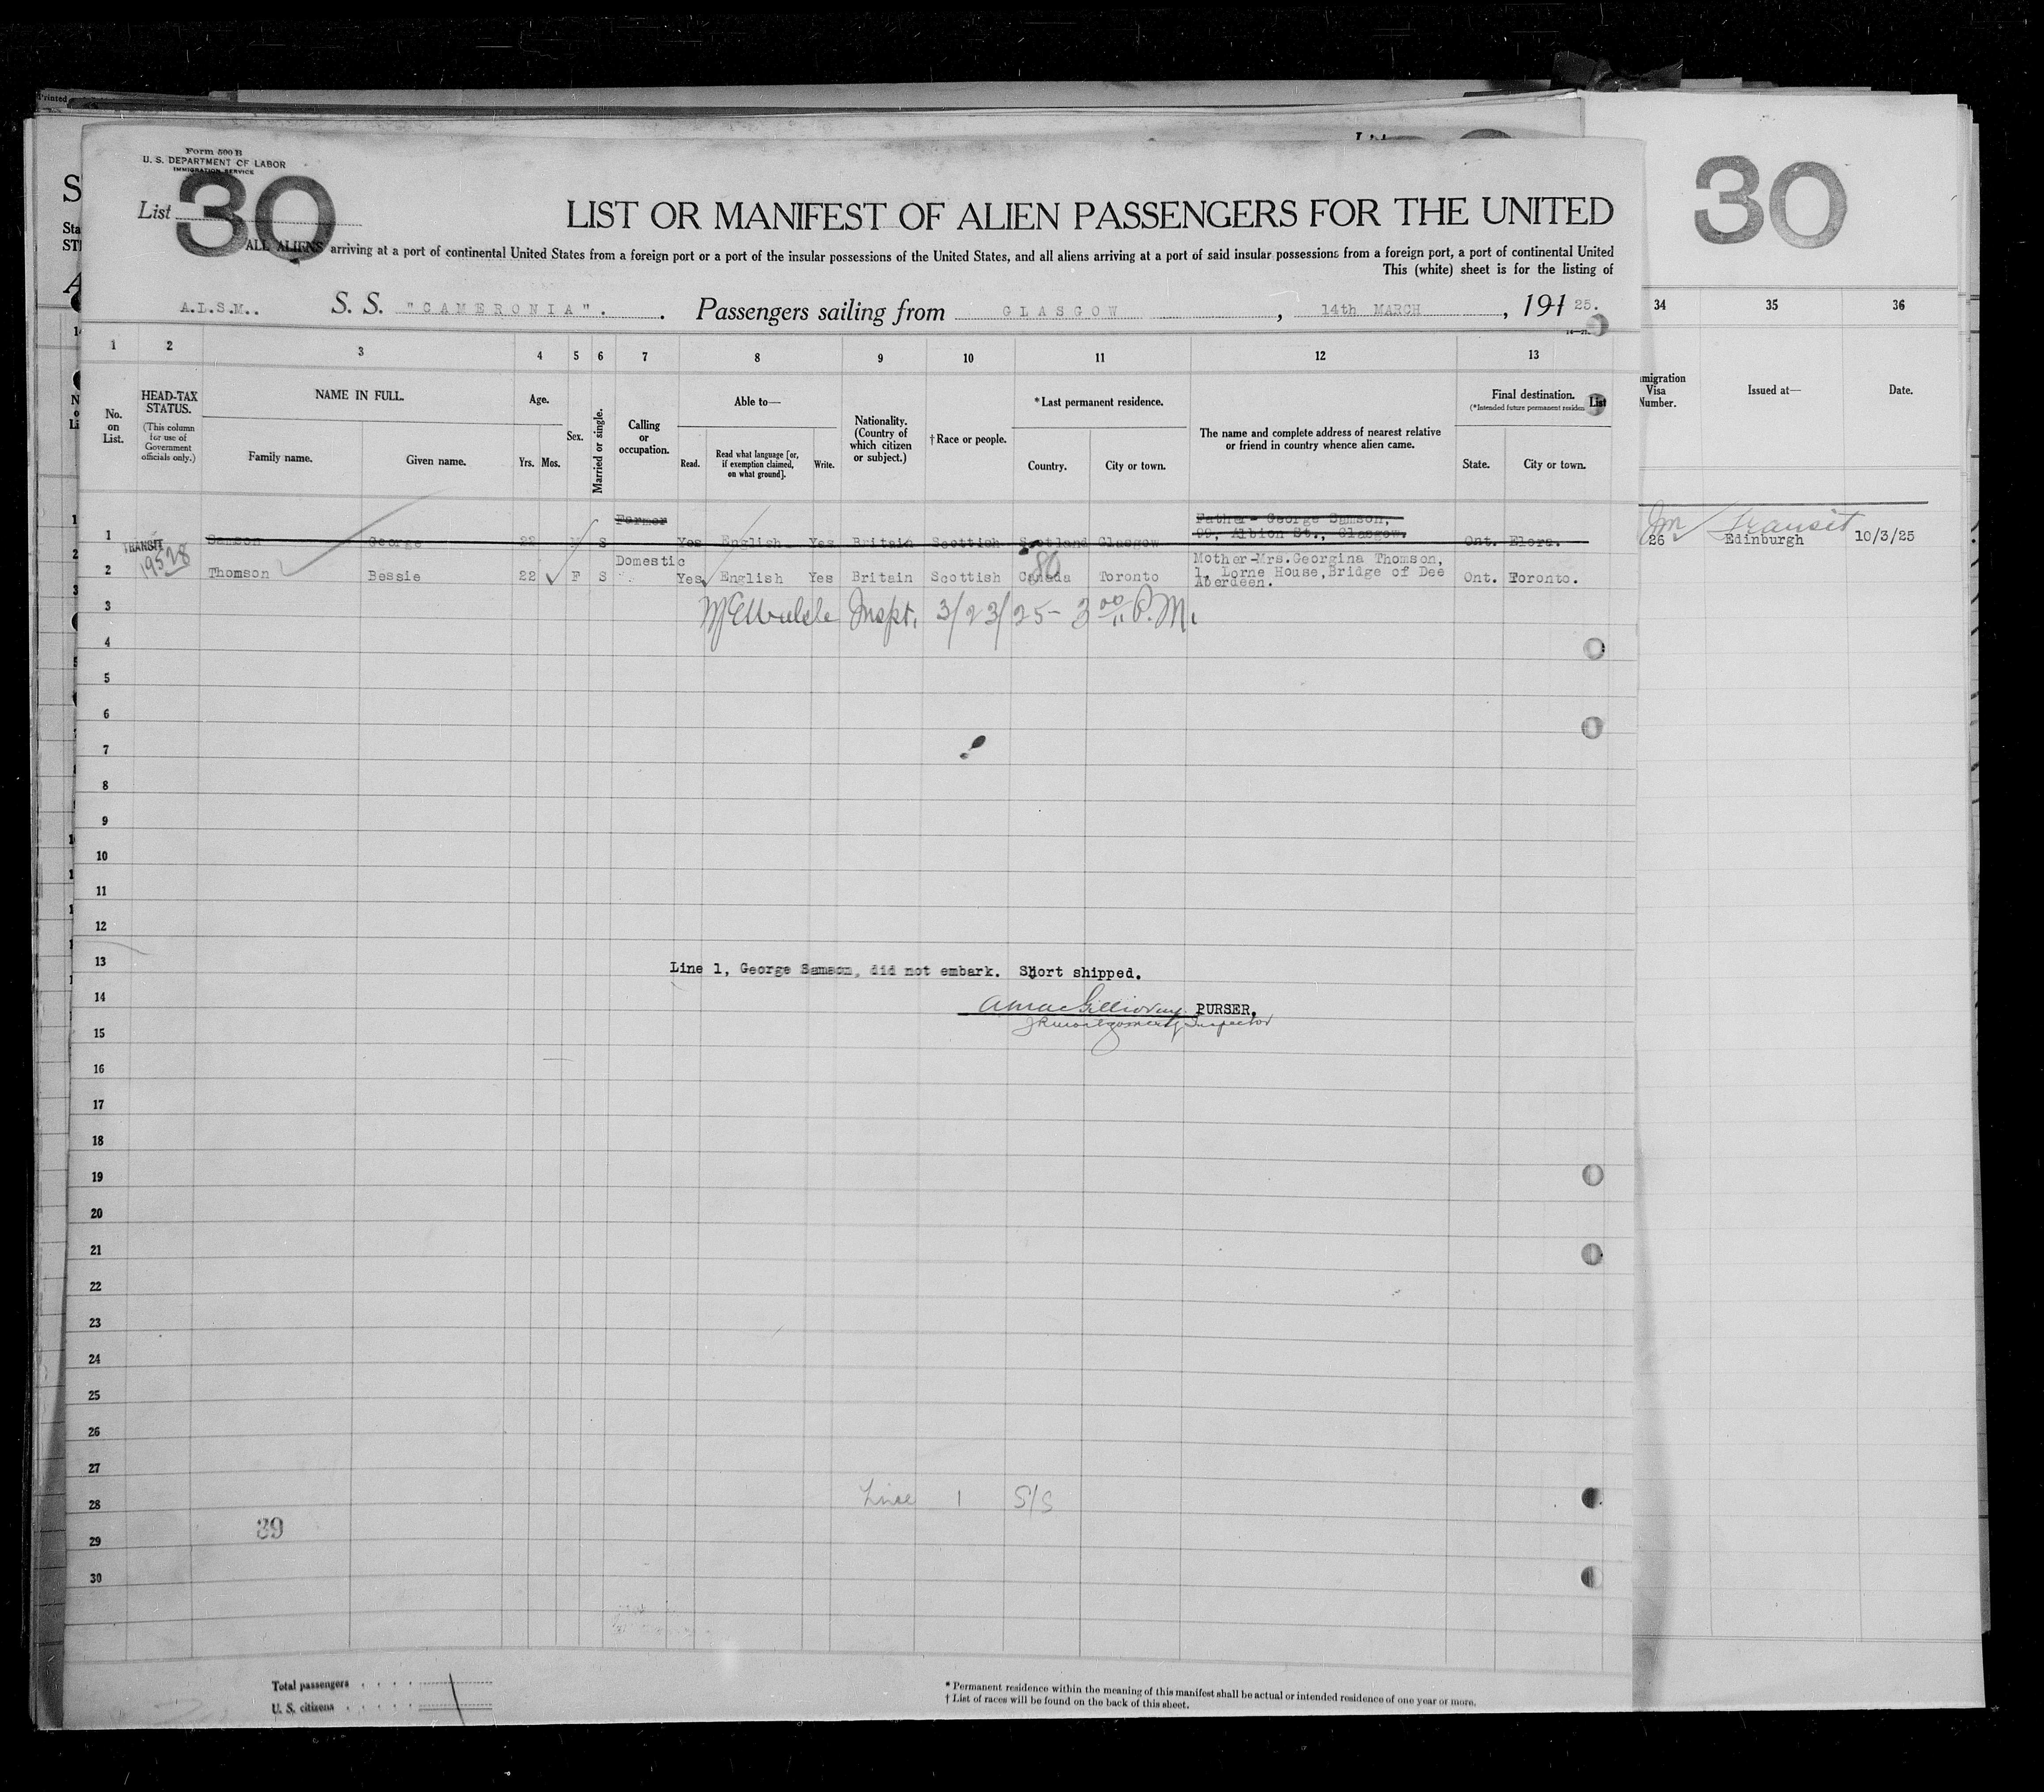 Printed
Form 500 B
U. S. DEPARTMENT OF LABOR
IMMIGRATION SERVICE
List 30
30
LIST OR MANIFEST OF ALIEN PASSENGERS FOR THE UNITED
ALL ALIENS arriving at a port of continental United States from a foreign port or a port of the insular possessions of the United States, and all aliens arriving at a port of said insular possessions from a foreign port, a port of continental United
This (white) sheet is for the listing of
A.L.S.M.. S. S. "CAMERONIA". Passengers sailing from GLASGOW, 14th MARCH, 191 25.
1 2 3 4 5 6 7 8 9 10 11 12 13 34 35 36
No. on List.
HEAD-TAX STATUS.
(This column for use of Government officials only.)
NAME IN FULL.
Family name. Given name.
Age.
Yrs. Mos.
Sex.
Married or single.
Calling or occupation.
Able to—
Read. Read what language [or, if exemption claimed, on what ground]. Write.
Nationality. (Country of which citizen or subject.)
†Race or people.
*Last permanent residence.
Country. City or town.
The name and complete address of nearest relative or friend in country whence alien came.
Final destination.
(*Intended future permanent residen
State. City or town.
List
migration Visa Number.
Issued at—
Date.
Farmer
Father- George Samson,
99, Albion St., Glasgow.
1 Samson George 22 M S Yes English Yes Britain Scottish Scotland Glasgow Ont. Elora.
26 Transit Edinburgh 10/3/25
TRANSIT
19528
Domestic
Mother-Mrs.Georgina Thomson,
2 Thomson Bessie 22 F S Yes English Yes Britain Scottish Canada Toronto 1, Lorne House, Bridge of Dee Ont. Toronto.
Aberdeen.
86
3 Inspt. 3/23/25- 3 00 P.M.
4
5
6
7
8
9
10
11
12
13 Line 1, George Samson, did not embark. Short shipped.
14 PURSER.
15 Inspector
16
17
18
19
20
21
22
23
24
25
26
27
28 Line 1 S/S
39
29
30
Total passengers
U. S. citizens
* Permanent residence within the meaning of this manifest shall be actual or intended residence of one year or more.
† List of races will be found on the back of this sheet.